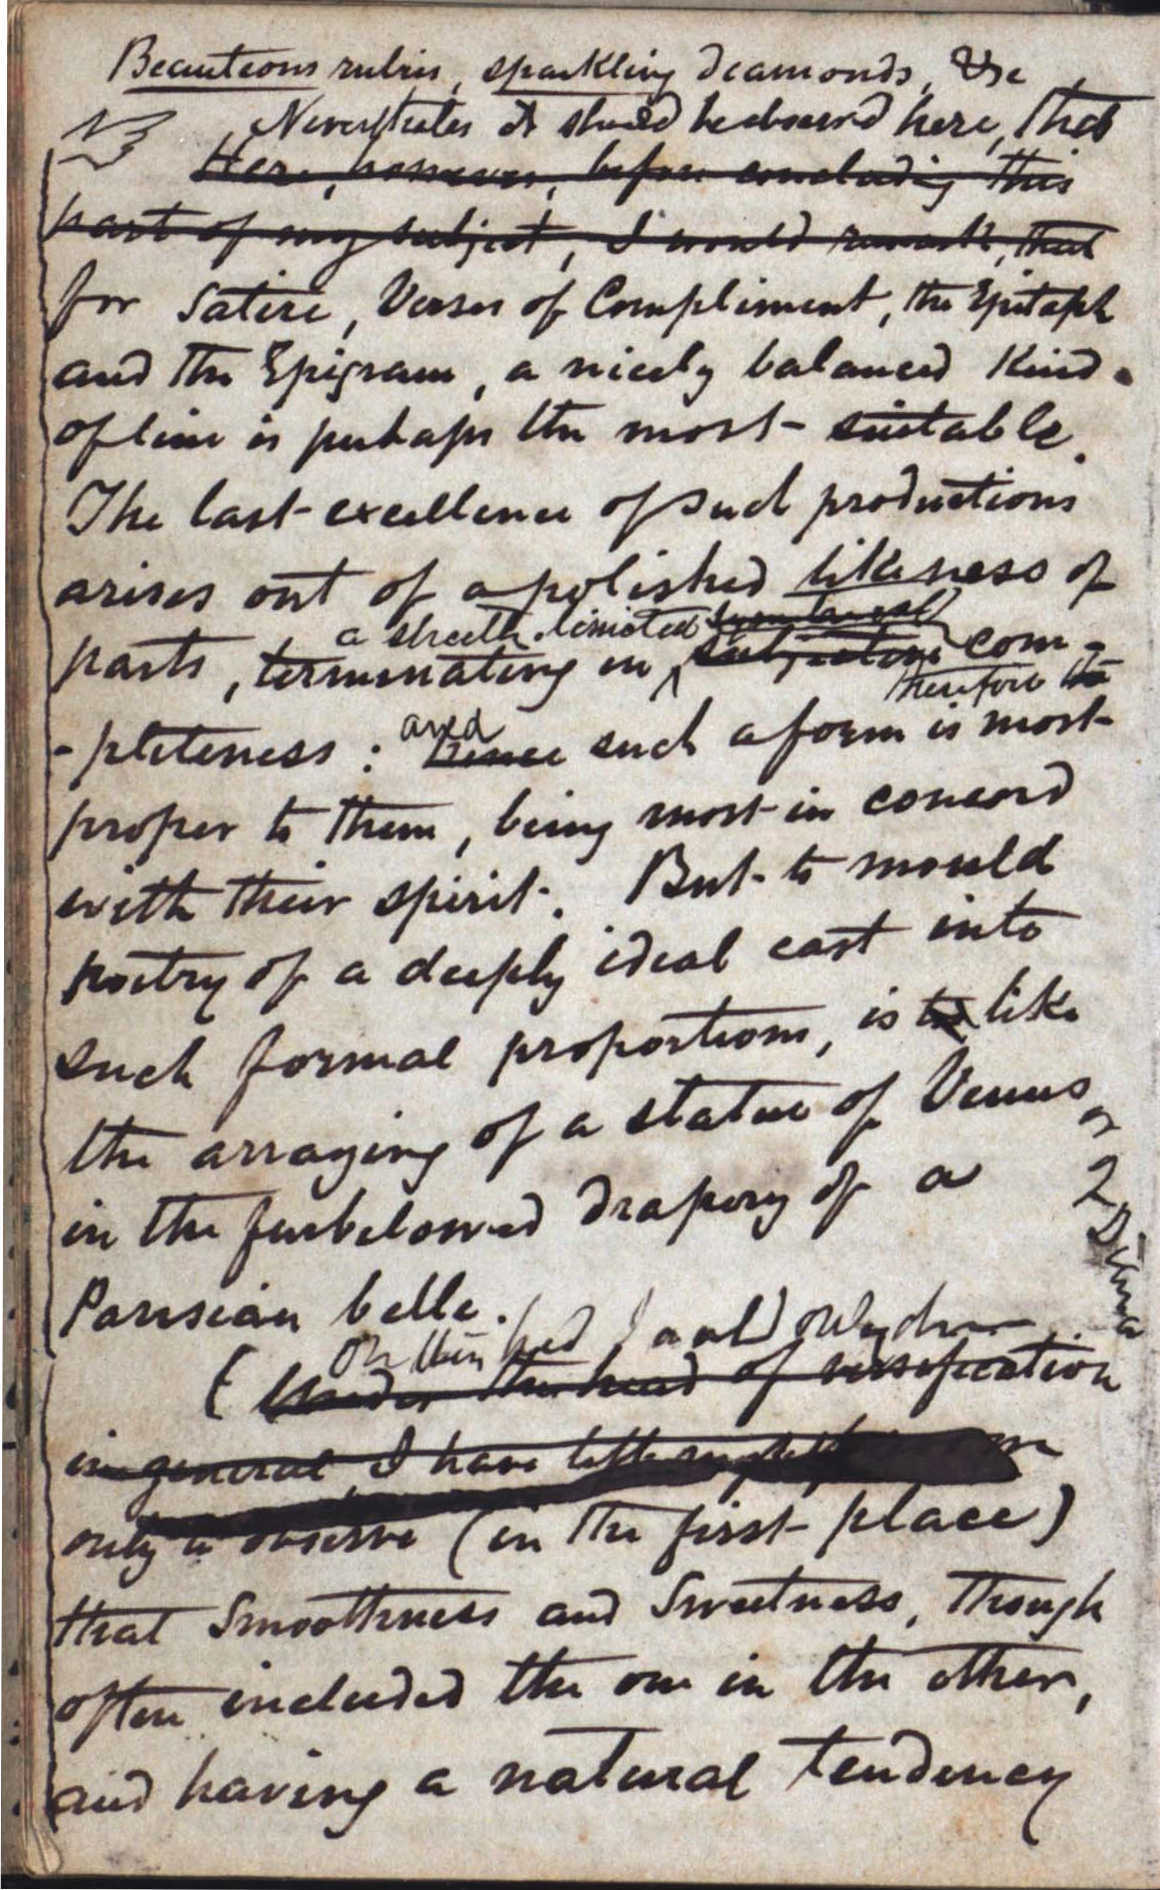 Beauteous rubies, sparkling diamonds, &c
Nevertheles it should be observed here, that
Here, however, before concluding this
part of my subject, I would remark, that
for Satire, Verses of Compliment, the Epitaph
and the Epigram, a nicely balanced kind
of line is perhaps the most suitable.
The last excellence of such productions
arises out of a polished likeness of
a strictly limited
parts, terminating in com-
therefore
-pleteness: and hence such a form is most
proper to them, being most in concord
with their spirit. But to mould
poetry of a deeply ideal cast into
such formal proportions, is to like
the arraying of a statue of Venus
or a Diana
in the furbelowed drapery of a
Parisian belle.
On this head I would only
(Under the head of versification
in general I have
only to observe (in the first place)
that Smoothness and Sweetness, though
often included the one in the other,
and having a natural tendency